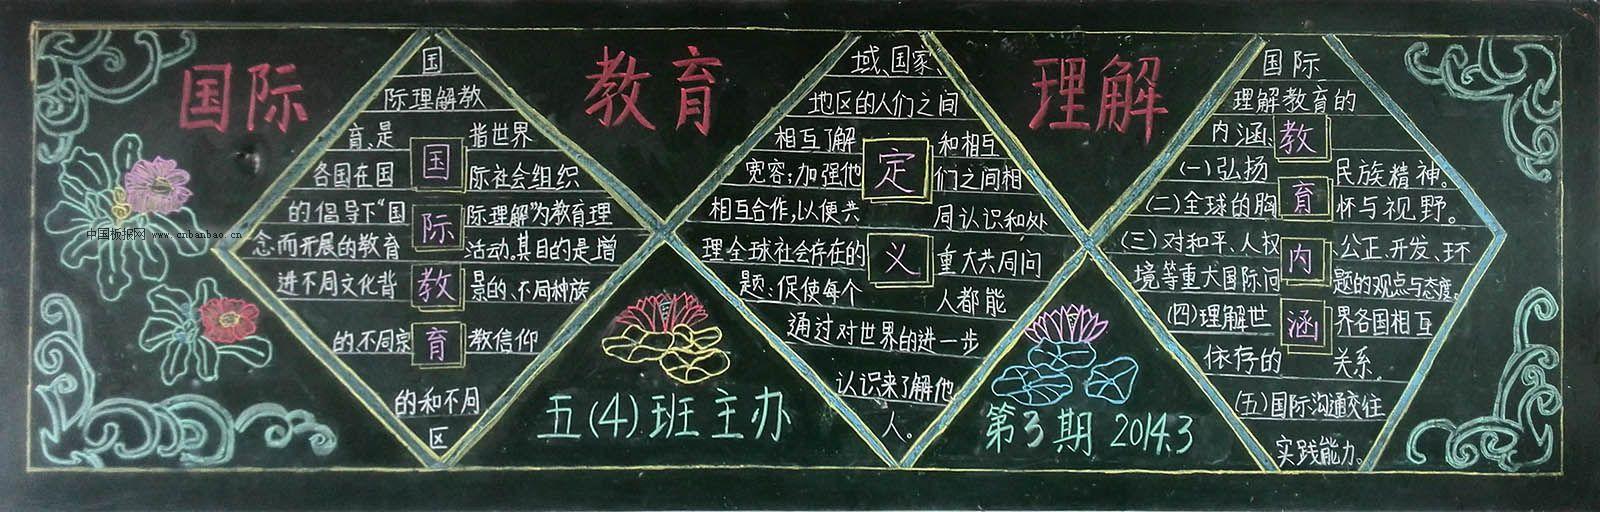 国际 教育 理解
国
际理解教
育,是指世界
各国在国际社会组织
的倡导下“国际理解”为教育理
念而开展的教育活动。其目的是增
进不同文化背景的、不同种族
的、不同宗教信仰
的和不同
区
国际教育
域、国家、
地区的人们之间
相互了解和相互
宽容;加强他们之间相
相互合作,以便共同认识和处
理全球社会存在的重大共同问
题;促使每个人都能
通过对世界的进一步
认识来了解他
人。
定义
国际
理解教育的
内涵
(一)弘扬民族精神。
(二)全球的胸怀与视野。
(三)对和平、人权、公正、开发、环
境等重大国际问题的观点与态度。
(四)理解世界各国相互
依存的关系。
(五)国际沟通交往
实践能力。
教育内涵
五(4)班主办
第3期 2014.3
中国板报网 www.cnbanbao.cn